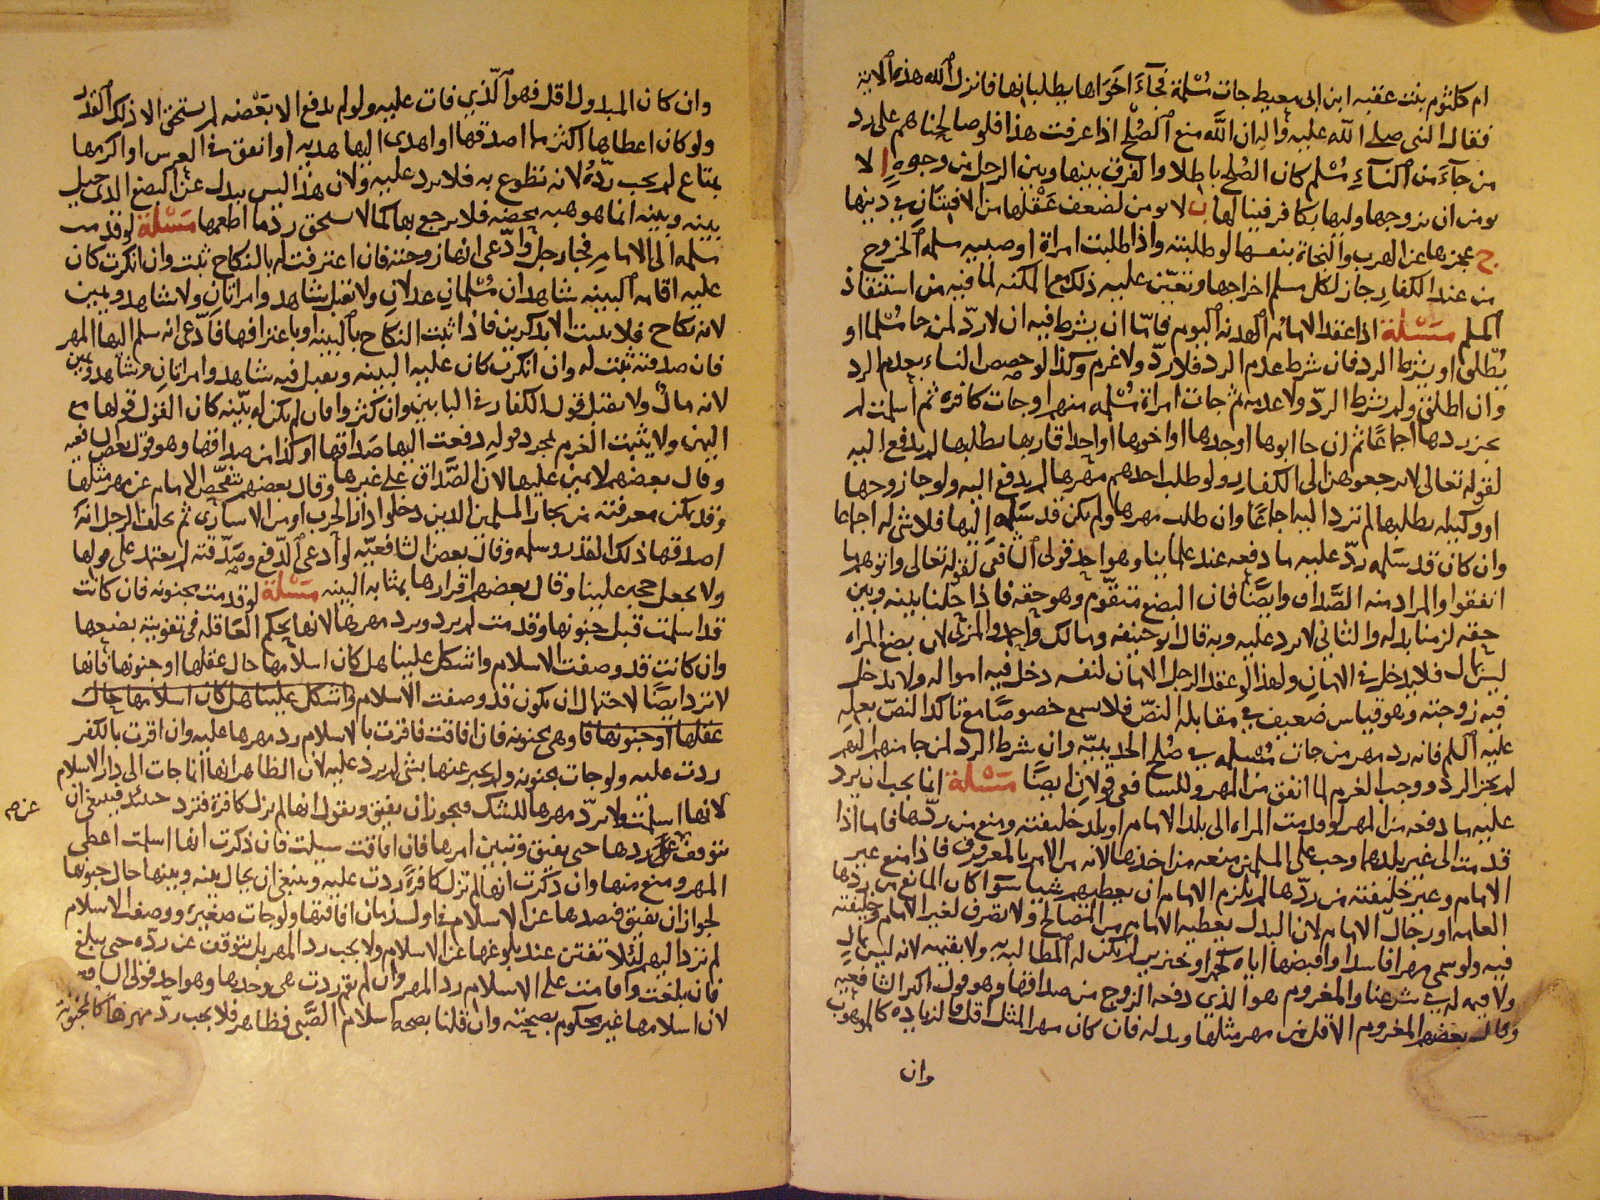 ام كلثوم بنت عقبه ابن ابى معيط جات مسلمة فجآء اخواها يطلبانها فانزل الله هذه الاية
فقال النبى صلى الله عليه وآله ان الله منع الصلح اذا عرفت هذا فلو صالحناهم على رد
من جآء من النسآء مسلم كان الصلح باطلا والفرق بينها وبين الرجل من وجوه ا لا
يومن ان يزوجها وليها بكافر فينالها ب لا يومن لضعف عقلها من الافتتان في دينها
ج عجزها عن الهرب والنجاة بنفسها لو طلبته واذا طلبت امراة او صبيه مسلمه الخروج
من عند الكفار جاز لكل مسلم اخراجها وتعين عليه ذلك مع المكنه لما فيه من استنقاذ
المسلم مسئلة اذا عقد الامام الهدنه اليوم فامّا ان يشرط فيه ان لا ردّ لمن جا مسلما او
يطلق او يشرط الرد فان شرط عدم الرد فلا ردّ ولا غرم وكذا لو خصص النساء بعدم الرد
وان اطلق ولم يشرط الردّ ولا عدمه ثم جات امراة مسلمه منهم او جات كافره ثم اسلمت لم
يجز ردها اجماعا ثم ان جا ابوها او جدها او اخوها او احد اقاربها يطلبها لم يدفع اليه
لقوله تعالى لا ترجعوهن الى الكفار ولو طلب احدهم مهرها لم يدفع اليه ولو جا زوجها
او وكيله يطلبها لم ترد اليه اجماعا وان طلب مهرها ولم يكن قد سلمه اليها فلا شى له اجماعا
وان كان قد سلمه ردّ عليه ما دفعه عند علمائنا وهو احد قولى الشافعى لقوله تعالى واتوهم ما
انفقوا والمراد منه الصّداق وايضا فان البضع متقوّم وهو حقه فاذا حلنا بينه وبين
حقه لزمنا بدله والثانى لا يرد عليه وبه قال ابو حنيفه ومالك واحمد والمزنى لان بضع المراه
ليس بمال فلا يدخل في الامان ولهذا لو عقد الرجل الامان لنفسه دخل فيه امواله ولا يدخل
فيه زوجته وهو قياس ضعيف في مقابله النصّ فلا يسمع خصوصا مع تاكد النصّ بعمله
عليه السلم فانه رد مهر من جات مسلمه في صلح الحديبيّه وان شرط الرد لمن جا منهم اليهم
لم يجز الرد ووجب الغرم لما انفق من المهر وللشافعى قولان ايضا مسئلة انما يجب ان يرد
عليه ما دفعه من المهر لو قدمت المراه الى بلد الامام او بلد خليفته ومنع من ردّها فاما اذا
قدمت الى غير بلدهما وجب على المسلمين منعه من اخذها لانه من الامر بالمعروف فاذا منع غير
الامام وغير خليفته من ردّها لم يلزم الامام ان يعطيهم شيئا سوا كان المانع من ردّها
العامه او رجال الامام لان البدل يعطيه الامام من المصالح ولا تصرف لغير الامام وخليفته
فيه ولو سمى مهرا فاسدا واقبضها اياه كخمر او خنزير لم يكن له المطالبه به ولا بقيمته لانه ليس بمال
ولا قيمه له في شرعنا والمغروم هو الذى دفعه الزوج من صداقها وهو قول اكثر الشافعيه
وقال بعضهم المغروم الاقل من مهر مثلها وبدله فان كان مهر المثل اقل فالزياده كالموهوب
وان
وان كان المبذول اقل فهو الّذى فات عليه ولو لم يدفع الا بعضه لم يستحق الا ذلك القدر
ولو كان اعطاها اكثر مما اصدقها او اهدى اليها هديه او انفق في العرس او اكرمها
بمتاع لم يجب ردّه لانه تطوع به فلا يرد عليه ولان هذا ليس ببدل عن البضع الذى حيل
بينه وبينه انما هو هبه محضه فلا يرجع بها كما لا يستحق رد ما اطعمها مسئلة لو قدمت
مسلمه الى الامام فجا رجل وادّعى انها زوجته فان اعترفت له بالنكاح ثبت وان انكرت كان
عليه اقامه البينه شاهدان مسلمان عدلان ولا تقبل شاهد وامراتان ولا شاهد ويمين
لانه نكاح فلا يثبت الا بذكرين فاذا ثبت النكاح بالبينه او باعترافها فادّعى انه سلم اليها المهر
فان صدقته ثبت له وان انكرت كان عليه البينه ويقبل فيه شاهد وامراتان وشاهد ويمين
لانه مال ولا يقبل قول الكفار في البابين وان كثروا فان لم يكن له بيّنه كان القول قولها مع
اليمين ولا يثبت الغرم بمجرد قوله دفعت اليها صداقها او كذا من صداقها وهو قول بعض الشافعيه
وقال بعضهم لا يمين عليها لان الصّداق على غيرها وقال بعضهم يتفحّص الامام عن مهر مثلها
وقد يمكن معرفته من تجار المسلمين الذين دخلوا دار الحرب او من الاسارى ثم يحلف الرجل انه
اصدقها ذلك القدر وسلمه وقال بعض الشافعيّه لو ادعى الدّفع وصدّقته لم يعتمد على قولها
ولا يجعل حجه علينا وقال بعضهم اقرارها بمثابه البينه مسئلة لو قدمت مجنونه فان كانت
قد اسلمت قبل جنونها وقدمت لم ترد ويرد مهرها لانها بحكم العاقله فى تفويته بضعها
وان كانت قد وصفت الاسلام واشكل علينا هل كان اسلامها حال عقلها او جنونها فانها
لا ترد ايضا لاحتمال ان يكون قد وصفت الاسلام واشكل علينا هل كان اسلامها حال
عقلها او جنونها فا وهى مجنونه فان افاقت فاقرت بالاسلام رد مهرها عليه وان اقرت بالكفر
ردت عليه ولو جات مجنونه ولم يخبر عنها بشى لم يرد عليه لان الظاهر انها انما جات الى دار الاسلام
لانها اسلمت ولا يردّ مهرها للشك فيجوز ان يفيق ويقول انها لم تزل كافرة فترد حينئذ فينبغى ان
يتوقف عن ردها حتى يفيق وتتبين امرها فان افاقت سيلت فان ذكرت انها اسلمت اعطى
عزم
المهر ومنع منها وان ذكرت انها لم تزل كافرة ردت عليه وينبغى ان يحال بينه وبينها حال جنونها
لجواز ان يفيق فيصدها عن الاسلام في اول زمان افاقتها ولو جات صغيره ووصف الاسلام
لم ترد اليهم لئلا تفتتن عند بلوغها عن الاسلام ولا يجب رد المهر بل يتوقف عن ردّه حتى يبلغ
فان بلغت واقامت على الاسلام رد المهر وان لم تقم ردت هى وحدها وهو احد قولى الشافعى
لان اسلامها غير محكوم بصحته وان قلنا بصحه اسلام الصّبى فظاهر فلا يجب ردّ مهرها كالمجنونه